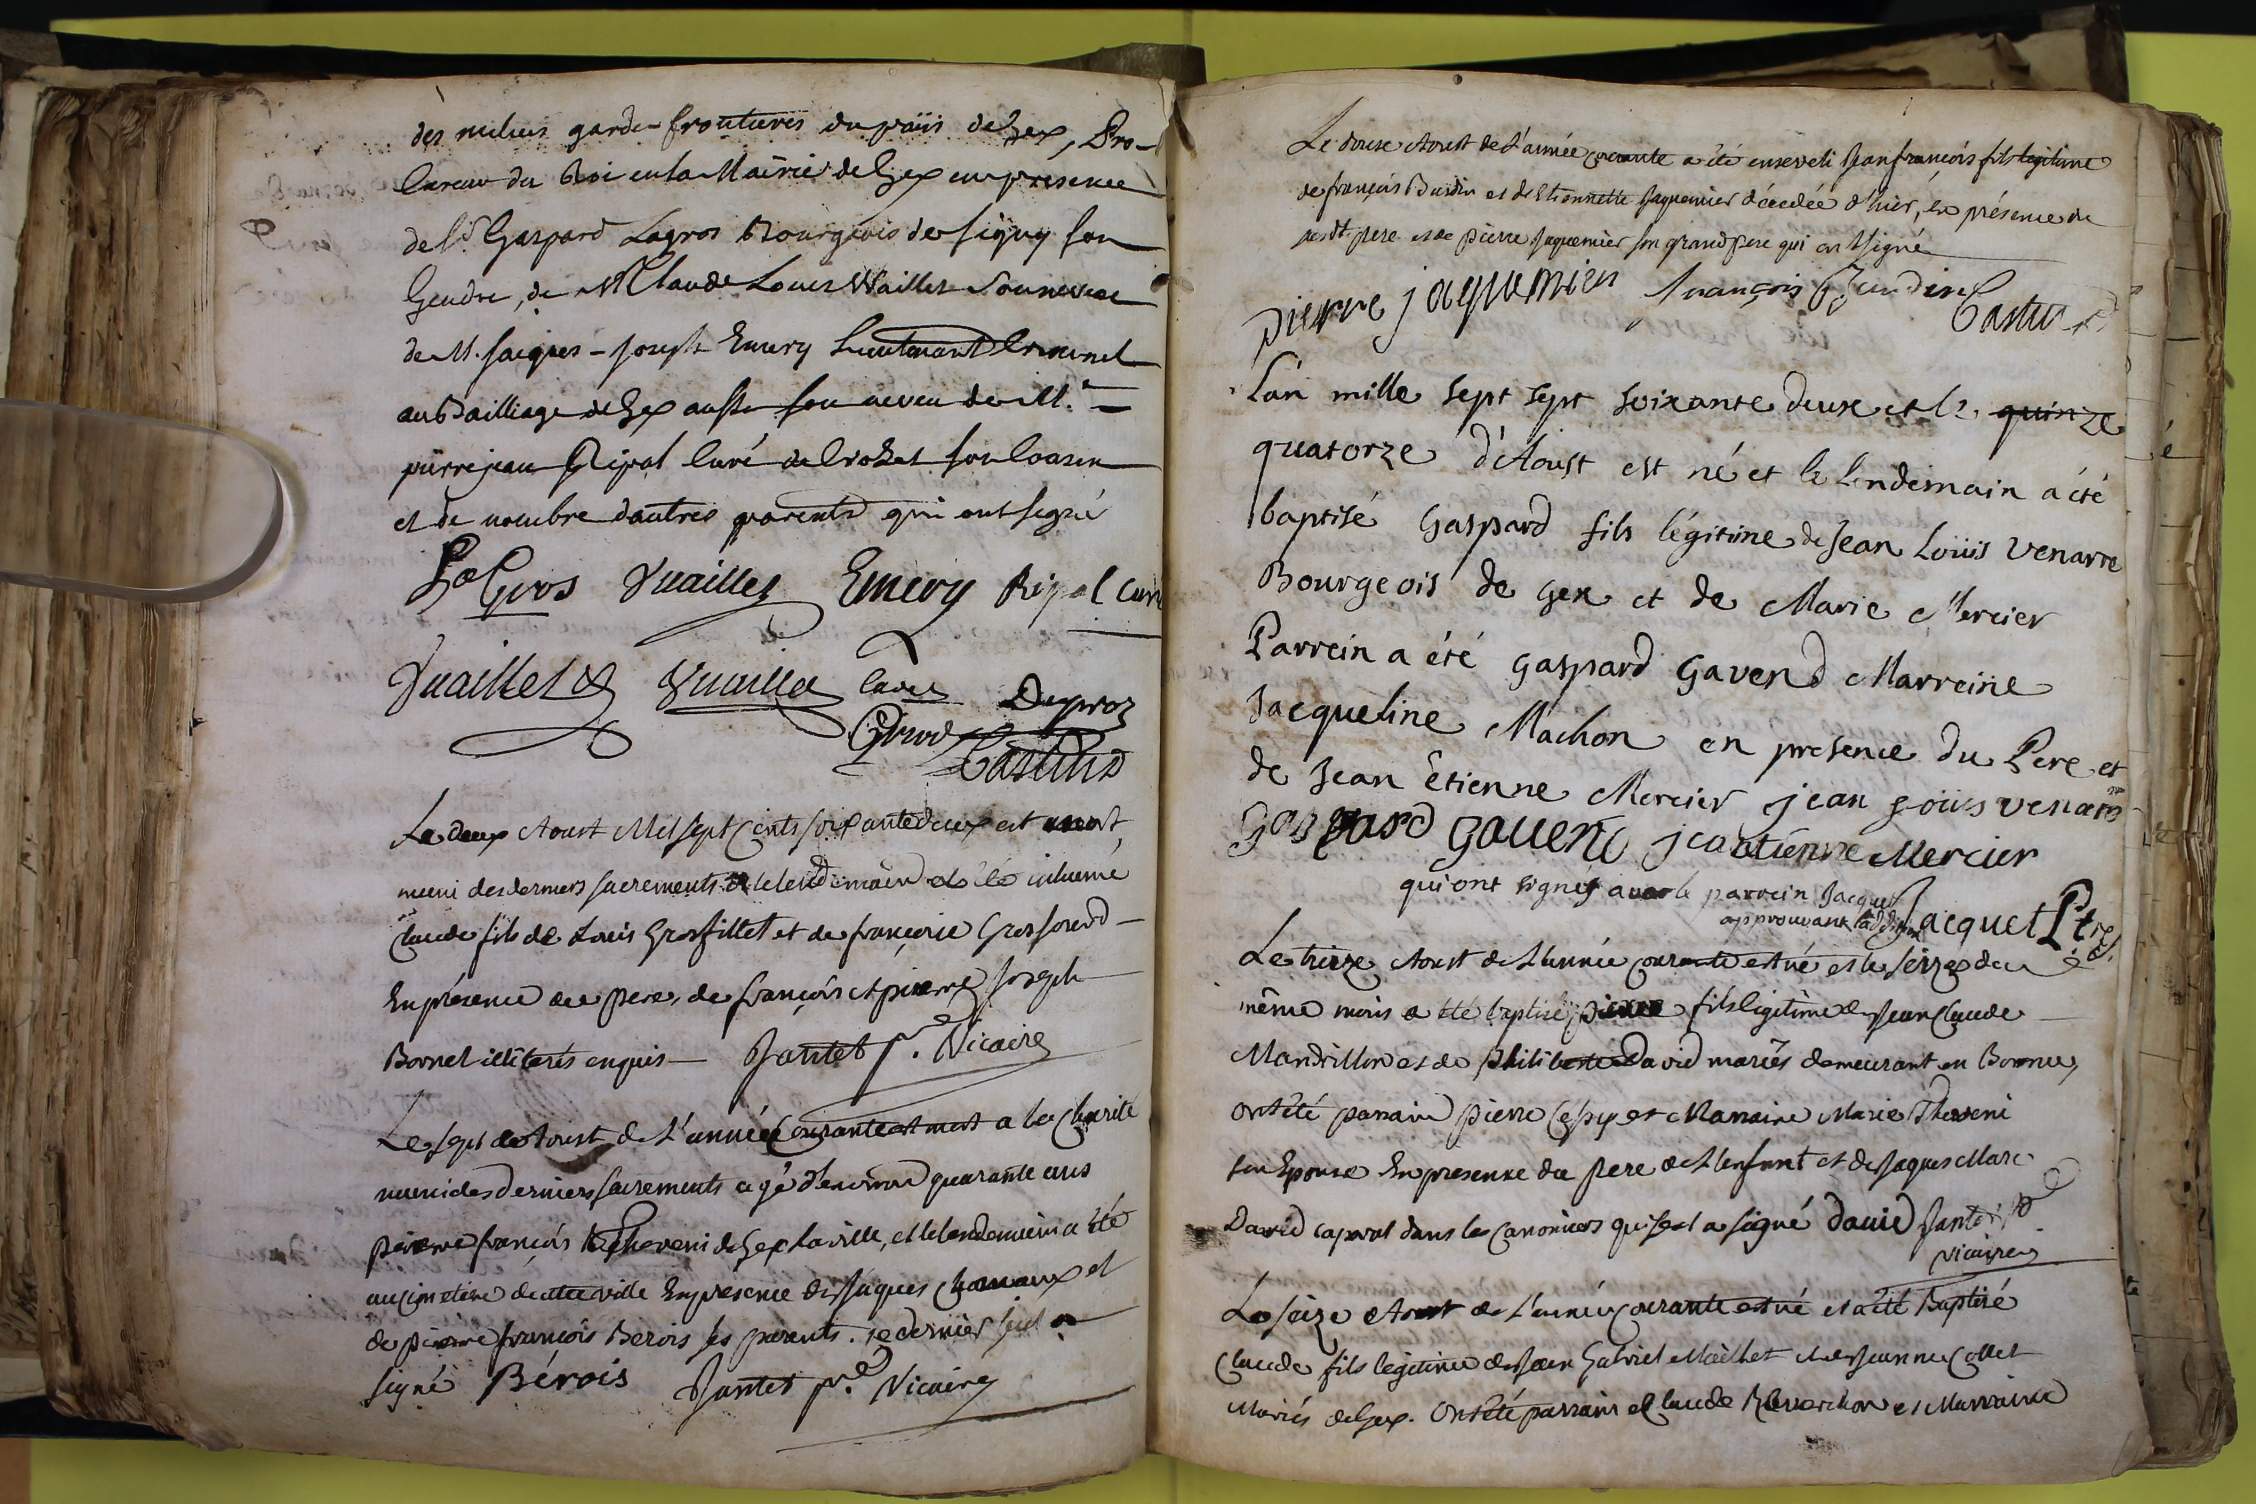 des milices garde-frontieres du païis de Gex, Pro-
cureur du Roi en la Mairie de Gex en presence
de Sr. Gaspard Lagros Bourgeois de signy son
Gendre, de Mr Claude Louis Wuaillet son neveu
de M. Jacques-Joseph Emery Lieutenant Criminel
au Bailliage de Gex aussi son neveu de Mr.
pierre jean Ripal curé de Crozet son Cousin
et de nombre d'autres parents qui ont signé
La Gros Vuaillet Emery Ripal curé
Vuaillet Vuaillet
Girod Deproz
Castin
Le deux Aoust Mil sept Cents soixante deux est mort,
muni des derniers sacrements et le lendemain a été inhumé
Claude fils de Louis Grosfillet et de françoise Grosfourd
En présence du pere, de françois et pierre Joseph
Bornet illiterés enquis Jantet ptre. Vicaire
Le sept d'Aoust de L'année Courante est mort a la Charité
muni des derniers sacrements agé d'environ quarante ans
pierre françois Theveni de Gex La ville, et le lendemain a été
au cimetiere de cette ville En presence de Jaques Chomaux et
de pierre françois Berois ses parents. ce dernier seul a
signé Bérois Jantet ptre. Vicaire
Le douse Aoust de L'année courante a été enseveli Jean françois fils légitime
de françois Burdin et de Etiennette Jaquemier décedée d'hier, en présence du
susdt. pere et de pierre Jaquemier son grand pere qui ont signé
pierre jaquemier françois Burdin Castin
L'an mille sept sept soixante deux et le quinze
quatorze d'Aoust est né et le lendemain a été
baptisé Gaspard fils légitime de Jean Loüis Venarre
Bourgeois de Gex et de Marie Mercier
Parrein a été Gaspard Gavend Marreine
Jacqueline Machon en presence du Pere et
de Jean Etienne Mercier jean Loüis venare
Gaspard Gauend jean étienne Mercier
qui ont signés avec le parrein Jacquet
approuvant l'addition Jacquet Ptre
Le treize Aoust de L'année courante est né et le seize du
même mois a été baptisé pierre fils légitime de Jean Claude
Mandrillon et de philiberte David mariés demeurant en Bonne,
ont été parrain pierre Cessy et Marraine Marie Theveni
son Epouse En presence du pere de L'enfant et de Jaques Marc
David caporal dans les Canoniers qui seul a signé david Jantet ptre
vicaire
Le seize Aoust de L'année courante est né et a été Baptisé
Claude fils légitime de Jean Gabriel Maillet et de Jeanne Collet
Mariés de Gex. Ont été parrain Claude Reverchon et Marraine